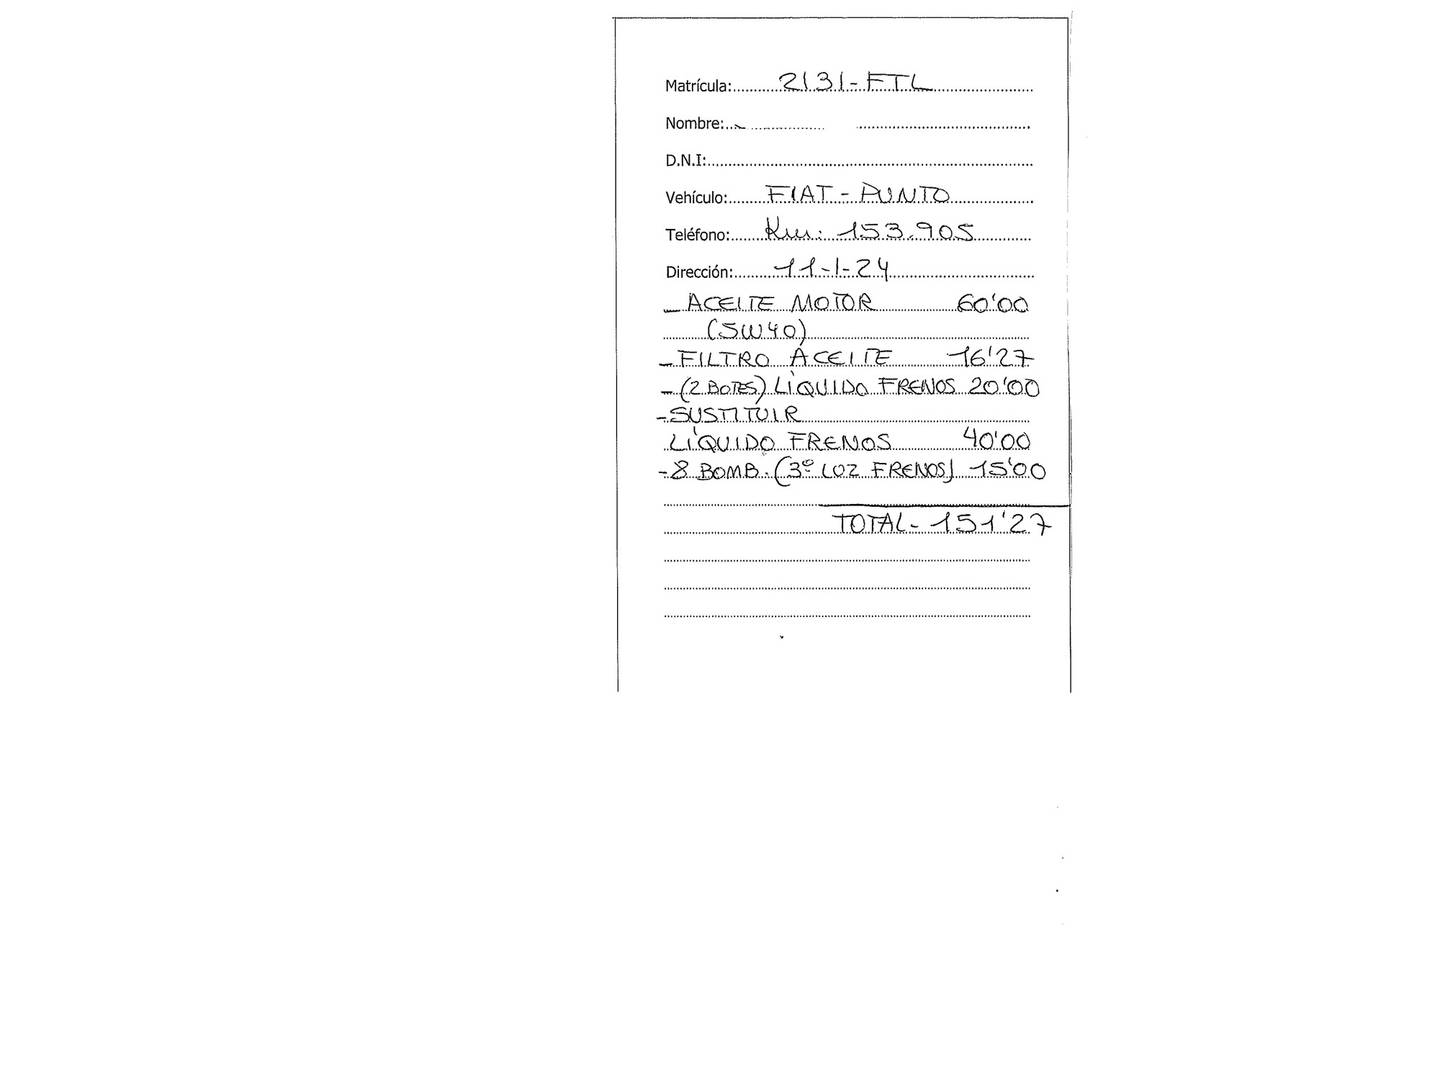 Matrícula: 2131-FTL
Nombre:
D.N.I:
Vehículo: FIAT-PUNTO
Teléfono: Km: 153.905
Dirección: 11-1-24
- ACEITE MOTOR 60'00
(5W40)
- FILTRO ACEITE 16'27
- (2 BOTES) LÍQUIDO FRENOS 20'00
- SUSTITUIR
LÍQUIDO FRENOS 40'00
- 8 BOMB. (3º LUZ FRENOS) 15'00
TOTAL- 151'27